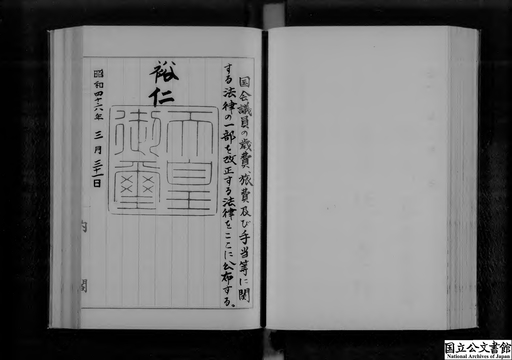 国会議員の歳費、旅費及び手当等に関
する法律の一部を改正する法律をここに公布する。
裕仁
天皇
御璽
昭和四十六年 三月 三十一日
内閣
国立公文書館
National Archives of Japan